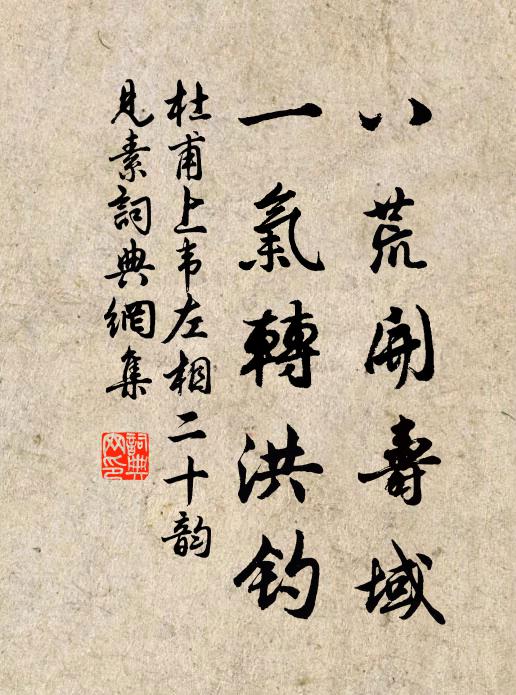 八荒開壽域
一氣轉洪鈞
杜甫上韦左相二十韵
見素詞典網集
詞典网印